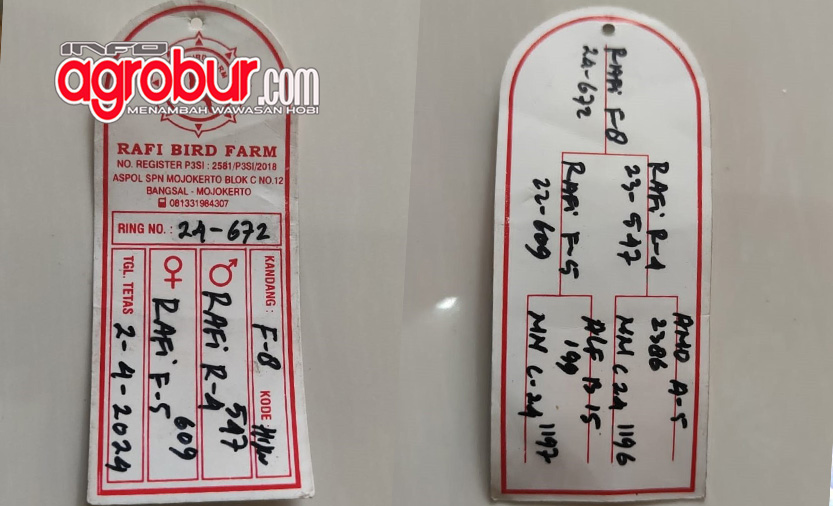 INFO
agrobur.com
MENAMBAH WAWASAN HOBI
RAFI BIRD FARM
NO. REGISTER P3SI : 2581/P3SI/2018
ASPOL SPN MOJOKERTO BLOK C NO.12
BANGSAL - MOJOKERTO
081331984307
RING NO. : 24-672
KANDANG : F-8 KODE
♂ RAFi R-4 547
♀ RAFi F-5 609
TGL. TETAS 2-4-2024
RAFi F-8
24-672
RAFi R-4
23-547
RAFi F-5
22-609
AMO A-5
2386
MN C24 1196
ALF B15
199
MN C-24 1197